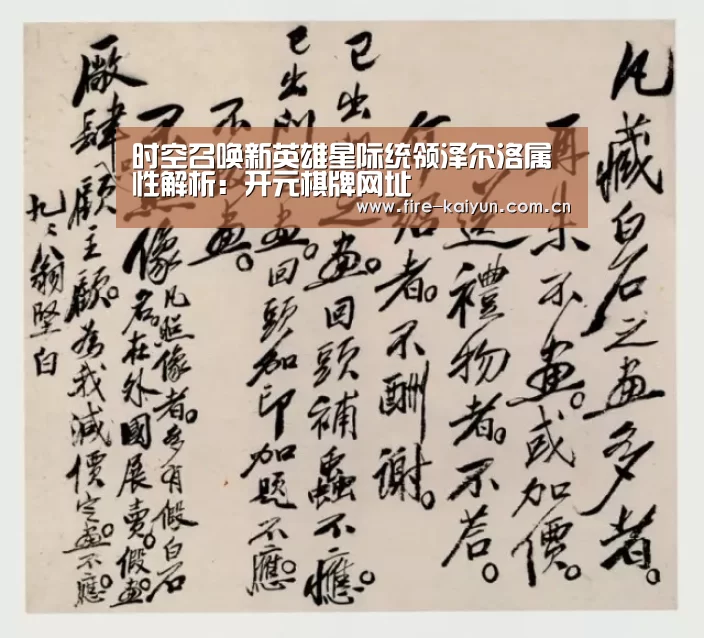 时空召唤新英雄星际统领泽尔洛属
性解析：开元棋牌网址
www.fire-kaiyun.com.cn
凡藏白石之畫多者。
再來不畫。或加價。
送禮物者。不答。
者。不酬謝。
已出畫回頭補蟲不應。
已出門畫回頭加印加題不應。
不畫。
不照像凡照像者。多有假白石
名。在外國展賣。假畫。
厰肆顧主顧為我減價定畫不應。
八翁堅白